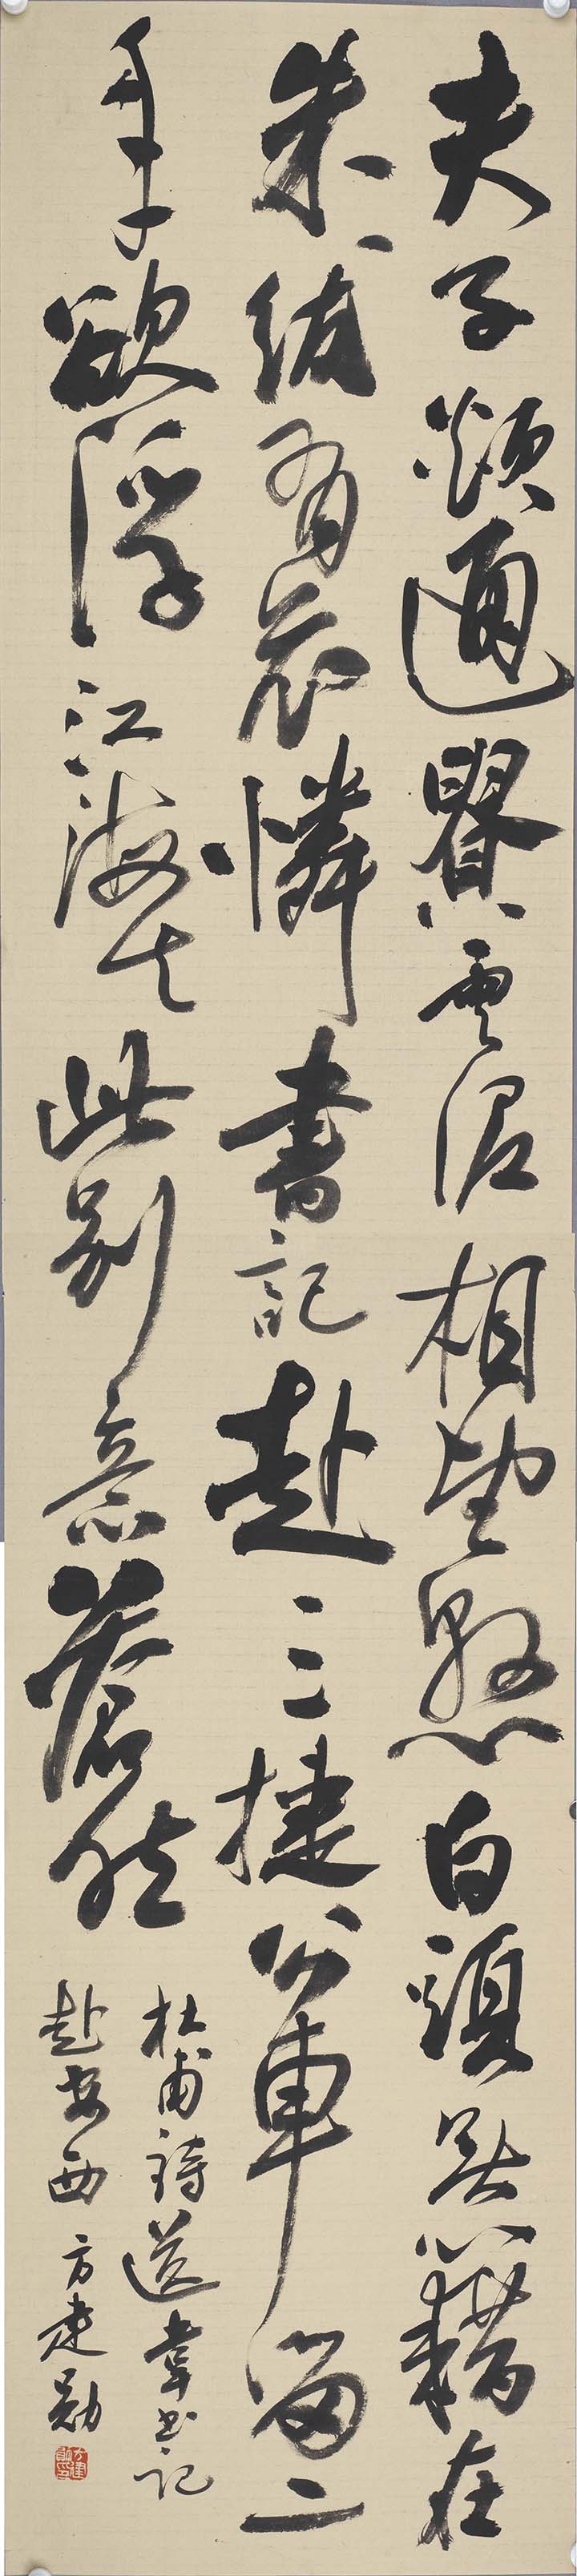 夫子欻通貴雲泥相望懸白頭無藉在
朱紱有哀憐書記赴三捷公車留二
年欲浮江海去此別意蒼然
杜甫詩送韋书記
赴安西 方建勛
方建勛印